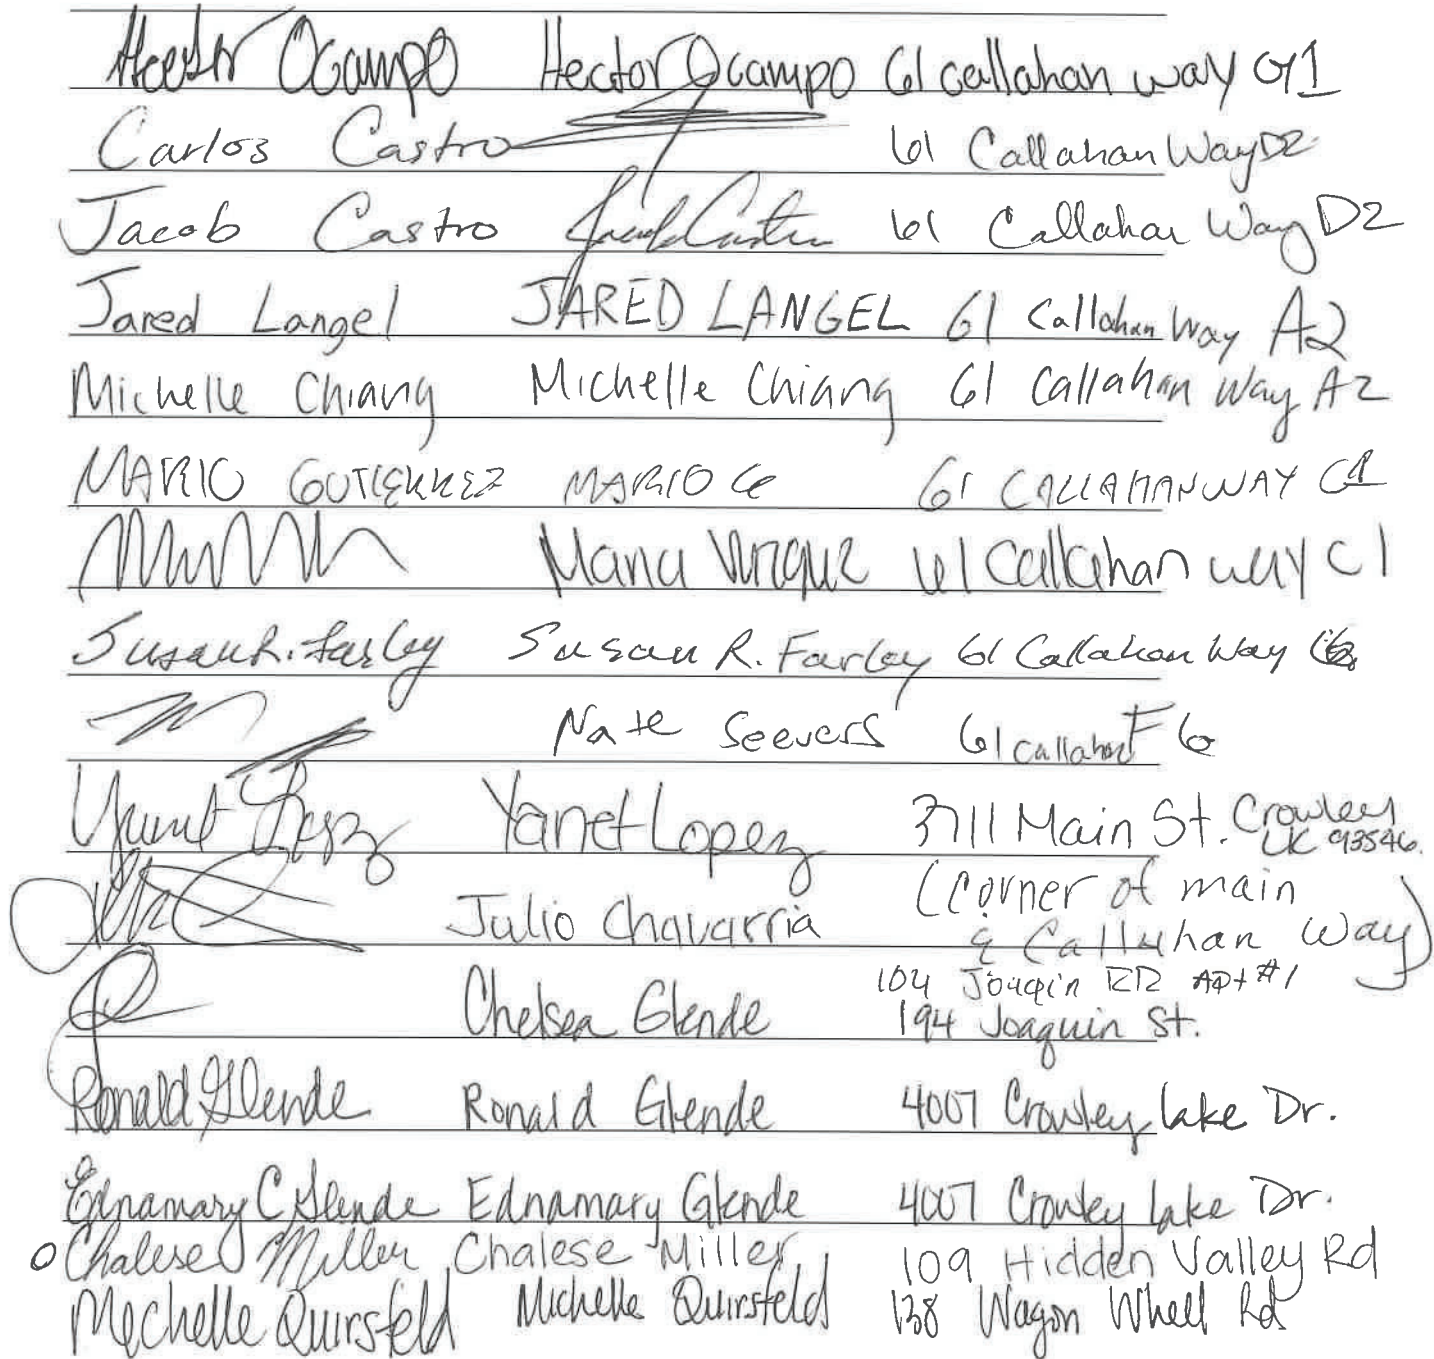 Hector Ocampo Hector Ocampo 61 Callahan way G1
Carlos Castro 61 Callahan Way D2
Jacob Castro Jacob Castro 61 Callahan Way D2
Jared Langel JARED LANGEL 61 Callahan Way A2
Michelle Chiang Michelle Chiang 61 Callahan Way A2
MARIO GUTIERREZ MARIO G 61 CALLAHAN WAY C1
Maria 61 Callahan way C1
Susan R. Farley Susan R. Farley 61 Callahan Way
Nate Seevers 61 Callahan F6
Yanet Lopez Yanet Lopez 3711 Main St. Crowley
LK 93546.
Julio Chavarria (corner of main
& Callahan Way)
104 Joaqin RD Apt #1
Chelsea Glende 194 Joaquin St.
Ronald Glende Ronald Glende 4007 Crowley lake Dr.
Ednamary C Glende Ednamary Glende 4007 Crowley lake Dr.
Chalese Miller Chalese Miller 109 Hidden Valley Rd
Mechelle Quirsfeld Michelle Quirsfeld 138 Wagon Whell Rd